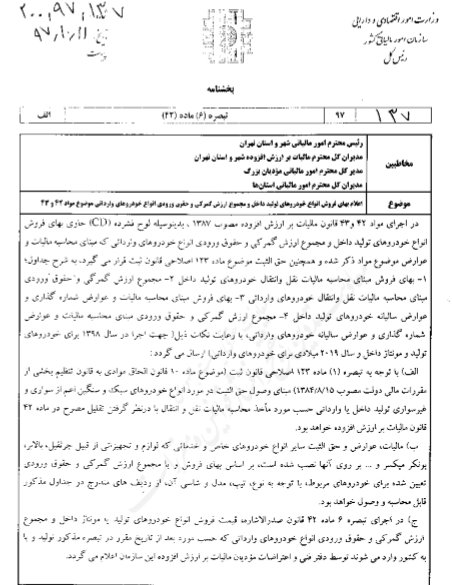 وزارت امور اقتصادی و دارایی
سازمان امور مالیاتی کشور
رئیس کل
۲۰۰,۹۷,۱۳۷
۹۷,۱۰,۱۱
بخشنامه
۱۳۷ ۹۷ تبصره (۶) ماده (۴۲) الف
مخاطبین
رئیس محترم امور مالیاتی شهر و استان تهران
مدیران کل محترم مالیات بر ارزش افزوده شهر و استان تهران
مدیر کل محترم امور مالیاتی مؤدیان بزرگ
مدیران کل محترم امور مالیاتی استان‌ها
موضوع اعلام بهای فروش انواع خودروهای تولید داخل و مجموع ارزش گمرکی و حقوق ورودی انواع خودروهای وارداتی موضوع مواد ۴۲ و ۴۳
در اجرای مواد ۴۲ و۴۳ قانون مالیات بر ارزش افزوده مصوب ۱۳۸۷، بدینوسیله لوح فشرده (CD) حاوی بهای فروش
انواع خودروهای تولید داخل و مجموع ارزش گمرکی و حقوق ورودی انواع خودروهای وارداتی که مبنای محاسبه مالیات و
عوارض موضوع مواد ذکر شده و همچنین حق الثبت موضوع ماده ۱۲۳ اصلاحی قانون ثبت قرار می گیرد، به شرح جداول؛
۱- بهای فروش مبنای محاسبه مالیات نقل وانتقال خودروهای تولید داخل ۲- مجموع ارزش گمرکی و حقوق ورودی
مبنای محاسبه مالیات نقل وانتقال خودروهای وارداتی ۳- بهای فروش مبنای محاسبه مالیات و عوارض شماره گذاری و
عوارض سالیانه خودروهای تولید داخل ۴- مجموع ارزش گمرکی و حقوق ورودی مبنای محاسبه مالیات و عوارض
شماره گذاری و عوارض سالیانه خودروهای وارداتی، با رعایت نکات ذیل( جهت اجرا در سال ۱۳۹۸ برای خودروهای
تولید و مونتاژ داخل و سال ۲۰۱۹ میلادی برای خودروهای وارداتی) ارسال می گردد :
الف) با توجه به تبصره (۱) ماده ۱۲۳ اصلاحی قانون ثبت (موضوع ماده ۱۰ قانون الحاق موادی به قانون تنظیم بخشی از
مقررات مالی دولت مصوب ۱۳۸۴/۸/۱۵) مبنای وصول حق الثبت در مورد انواع خودروهای سبک و سنگین اعم از سواری و
غیرسواری تولید داخل یا وارداتی حسب مورد مأخذ محاسبه مالیات نقل و انتقال با درنظر گرفتن تقلیل مصرح در ماده ۴۲
قانون مالیات بر ارزش افزوده خواهد بود.
ب) مالیات، عوارض و حق الثبت سایر انواع خودروهای خاص و خدماتی که لوازم و تجهیزاتی از قبیل جرثقیل، بالابر،
بونکر میکسر و ... بر روی آنها نصب شده است، بر اساس بهای فروش و یا مجموع ارزش گمرکی و حقوق ورودی
تعیین شده برای خودروهای مربوط، با توجه به نوع، تیپ، مدل و شاسی آن، از ردیف های مندرج در جداول مذکور
قابل محاسبه و وصول خواهد بود.
ج) در اجرای تبصره ۶ ماده ۴۲ قانون صدرالاشاره، قیمت فروش انواع خودروهای تولید یا مونتاژ داخل و مجموع
ارزش گمرکی و حقوق ورودی انواع خودروهای وارداتی که حسب مورد بعد از تاریخ مقرر در تبصره مذکور تولید و یا
به کشور وارد می شوند توسط دفتر فنی و اعتراضات مؤدیان مالیات بر ارزش افزوده این سازمان اعلام می گردد.